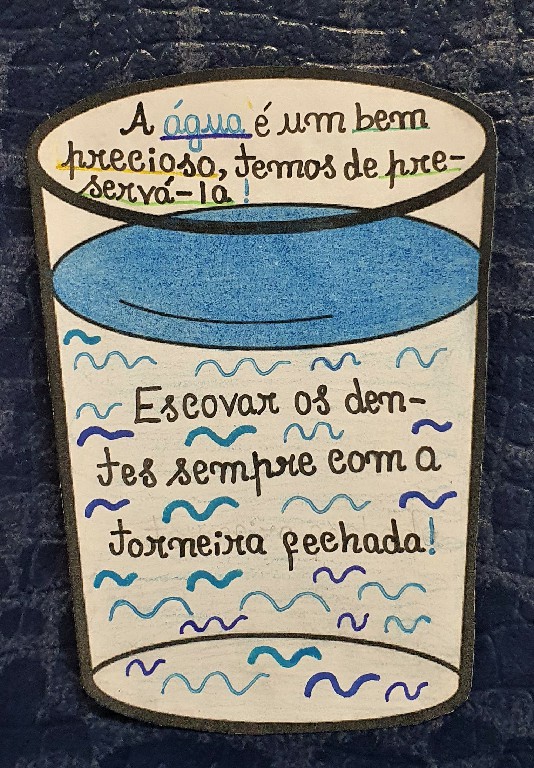 A água é um bem
precioso, temos de pre-
servá-la!
Escovar os den-
tes sempre com a
torneira fechada!